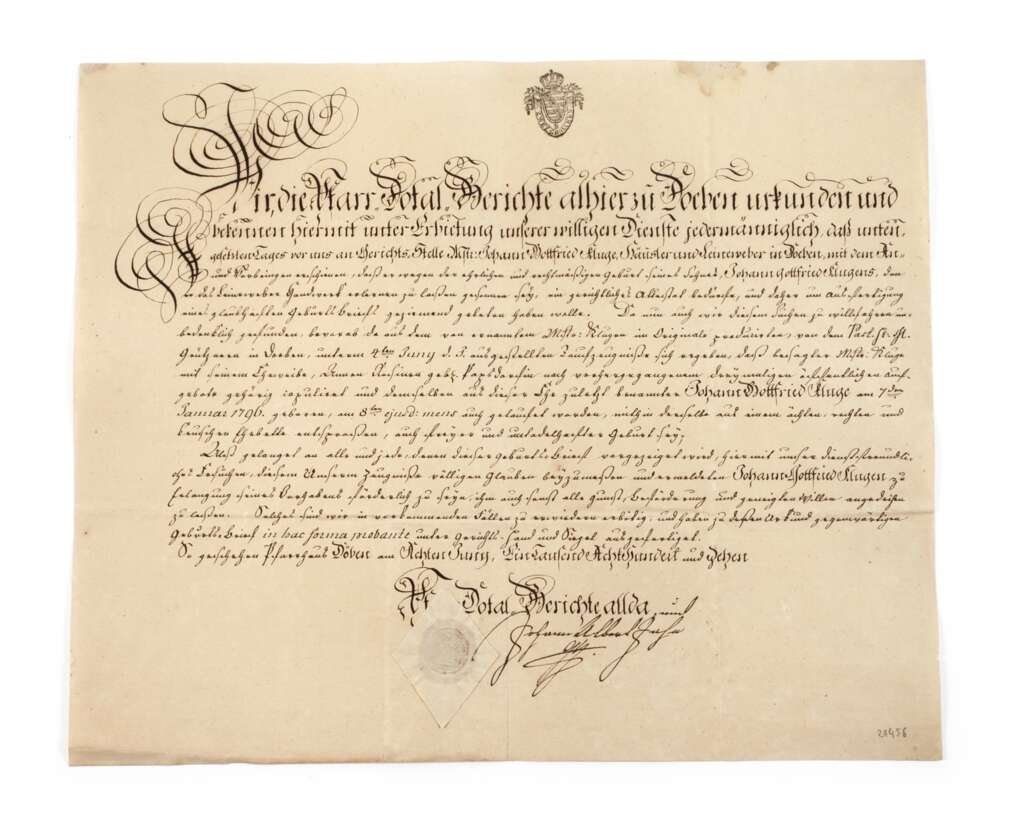 Wir, die Pfarr-Dotal-Gerichte alhier zu Doeben urkunden und
bekennen hiermit unter Erbietung unserer willigen Dienste jedermänniglich, daß unten-
gesetzten Tages vor uns an Gerichts-Stelle Mstr: Johann Gottfried Kluge, Häusler und Leineweber in Doeben, mit dem An-
und Vorbringen erschienen, daß er wegen der ehrlichen und rechtmäßigen Geburt seines Sohnes, Johann Gottfried Klugens, den
er das Leineweber Handwerk erlernen zu laßen gesonnen sey, ein gerichtliches Attestat bedürfe, und daher um Ausfertigung
eines glaubhaften Geburts-Briefs geziemend gebeten haben wolle. Da nun auch wir diesem Suchen zu willfahren un-
bedenklich gefunden, bevorab da aus dem von ernannten Mstr: Klugen in Originale producirten, von dem Past: H.
in Doeben, unterm 4ten Juny d. J. ausgestellten Taufzeugniße sich ergeben, daß besagter Mstr: Kluge
mit seinem Eheweibe, Annen Rosinen geb: nach vorhergegangenem dreymaligen öffentlichen Auf-
gebote gehörig copuliret und demselben aus dieser Ehe zuletzt benannter Johann Gottfried Kluge am 7den
Januar 1796. geboren, am 8ten ejusd: mens: auch getauft worden, mithin derselbe aus einem ächten, rechten und
keuschen Ehebette entsproßen, auch freyer und untadelhafter Geburt sey;
Alß gelanget an alle und jede, denen dieser Geburts-Brief vorgezeiget wird, hiermit unser dienstfreundli-
ches Ersuchen, diesem Unserm Zeugniße völligen Glauben beyzumeßen und ermeldeten Johann Gottfried Klugen zu
Erlangung seines Vorhabens förderlich zu seyn, ihm auch sonst alle Gunst, Beförderung und geneigten Willen angedeihen
zu laßen. Solches sind wir in vorkommenden Fällen zu erwiedern erbötig, und haben zu deßen Urkund gegenwärtigen
Geburts-Brief in hac forma probante unter Gerichts-Hand und Siegel ausgefertiget.
So geschehen Pfarrhaus Döben am Achten Juny, Ein Tausend Acht Hundert und Zehen
Pf. Dotal-Gerichte allda und
Johann Albert
20456